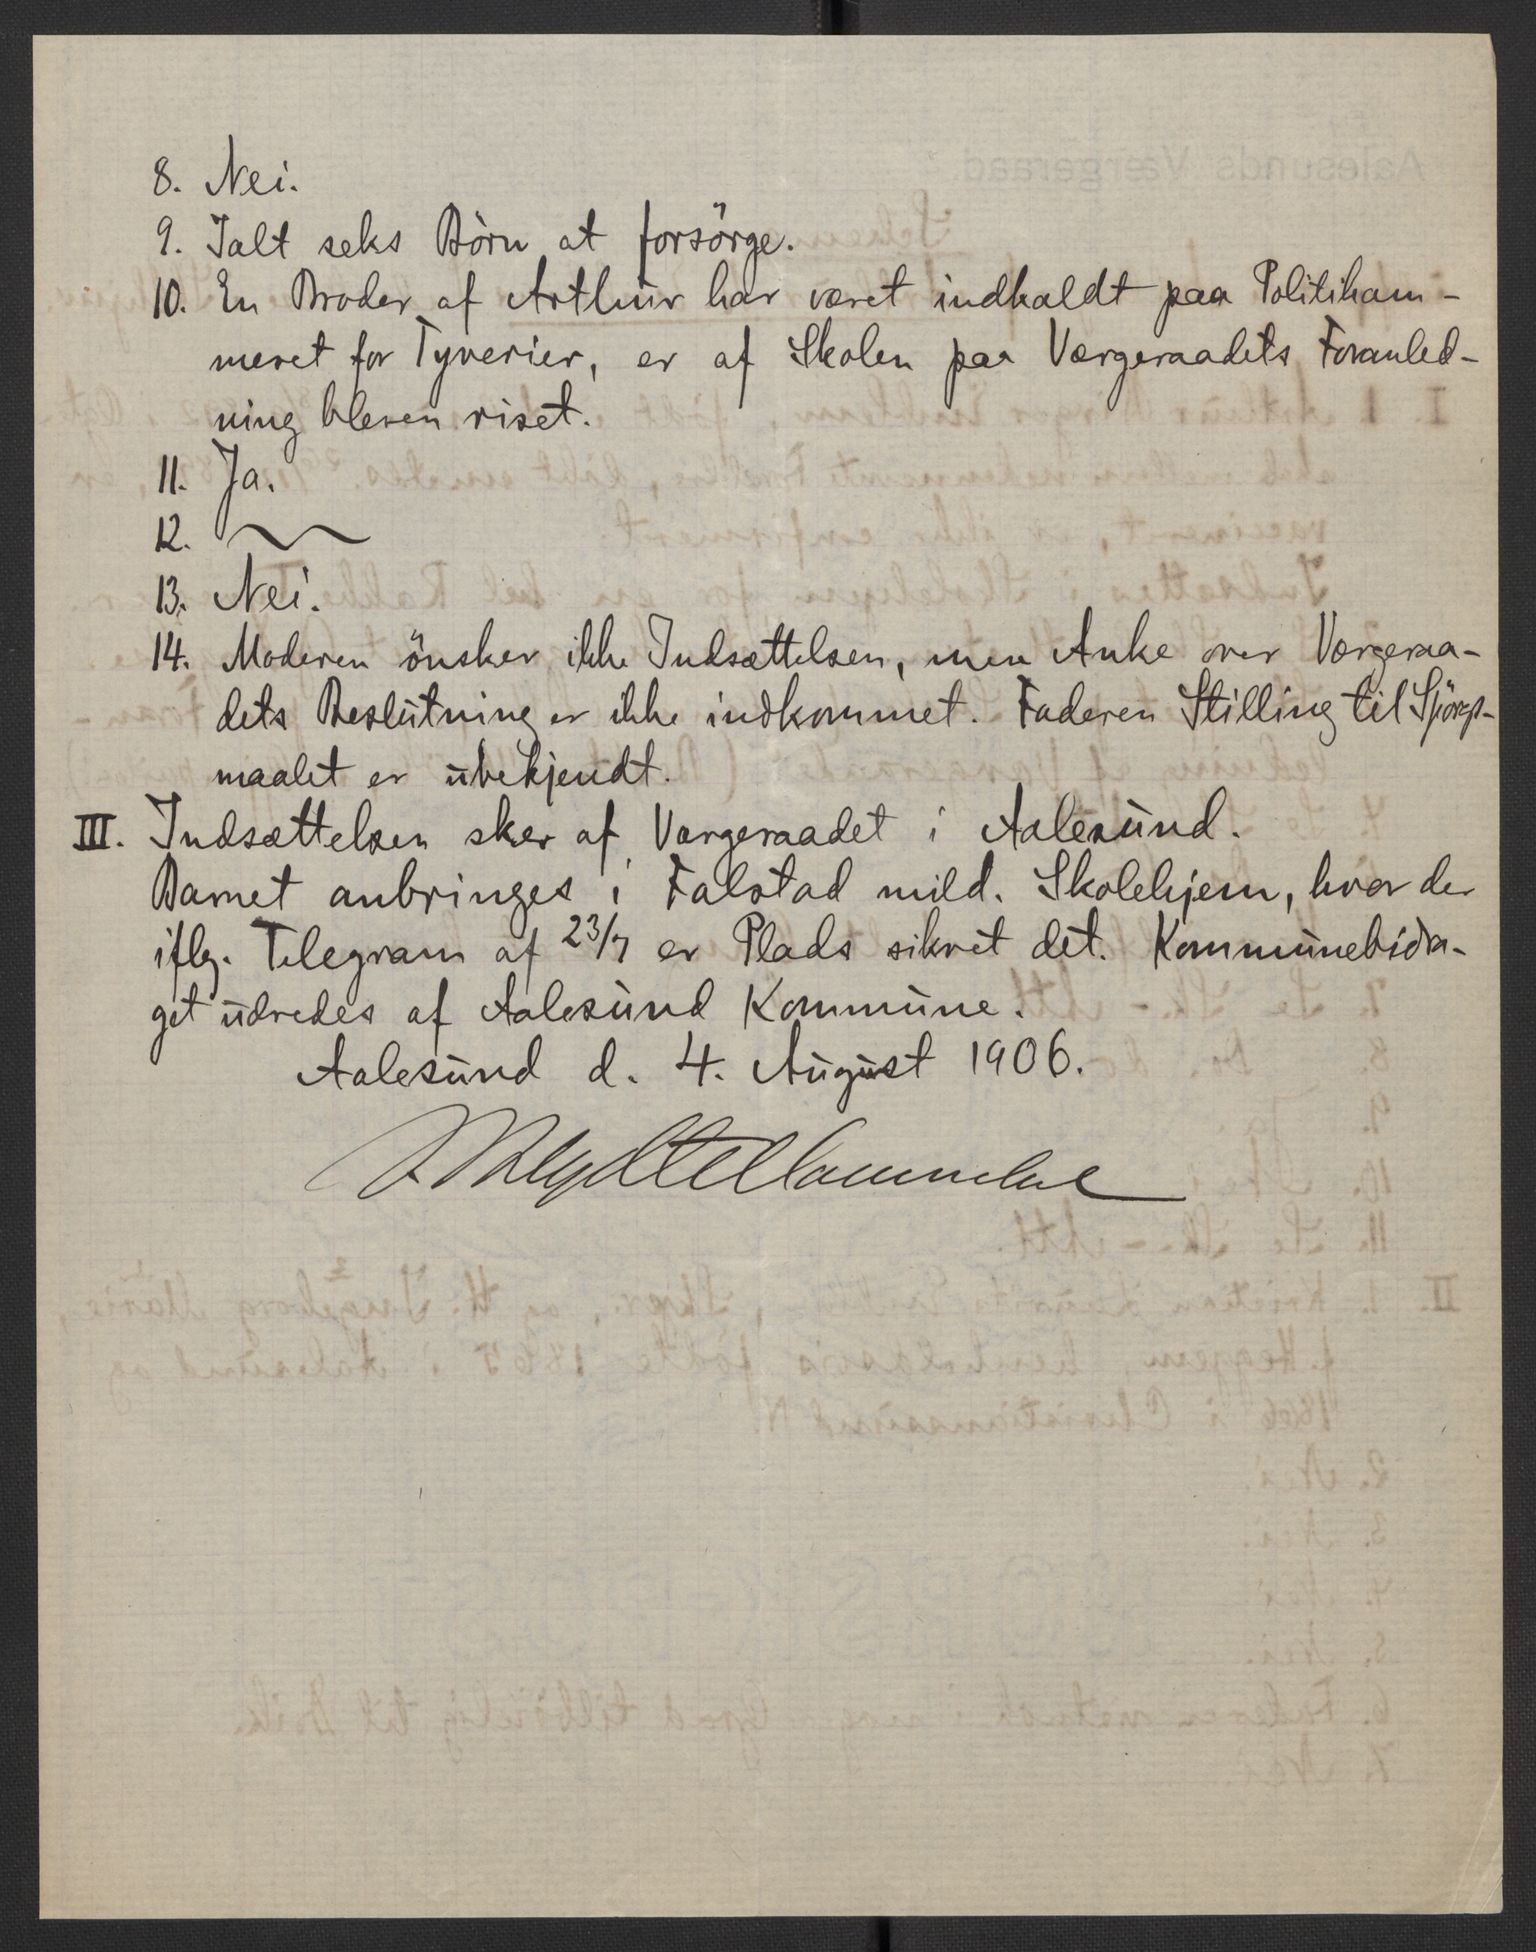 8. Nei.
9. Ialt seks Börn at forsörge.
10. En Broder af Arthur har været indkaldt paa Politikam-
meret for Tyverier, er af Skolen paa Værgeraadets Foranled-
ning bleven riset.
11. Ja.
12. ~
13. Nei.
14. Moderen önsker ikke Indsættelsen, men Anke over Værgeraa-
dets Beslutning er ikke indkommet. Faderen Stilling til Spörgs-
maalet er ubekjendt.
III. Indsættelsen sker af Værgeraadet i Aalesund.
Barnet anbringes i Falstad mild. Skolehjem, hvor der
iflg. Telegram af 23/7 er Plads sikret det. Kommunebidra-
get udredes af Aalesund Kommune.
Aalesund d. 4. August 1906.